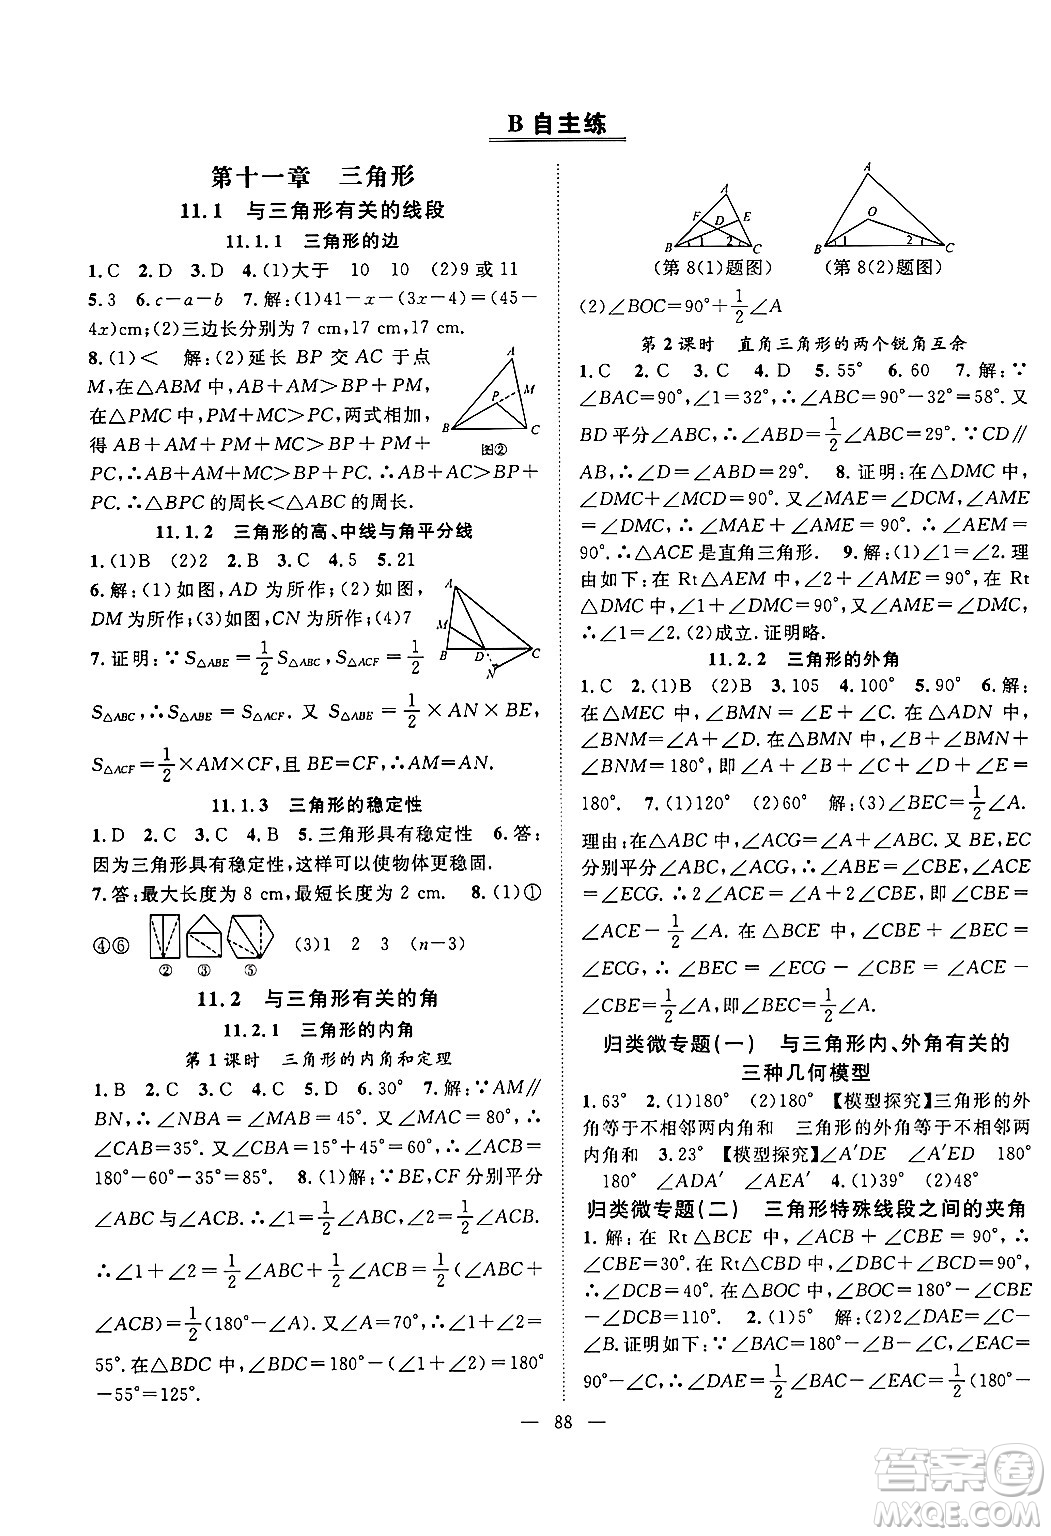 B 自主练
第十一章 三角形
11.1 与三角形有关的线段
11.1.1 三角形的边
1.C 2.D 3.D 4.(1)大于 10 10 (2)9 或 11
5.3 6.c－a－b 7.解:(1)41－x－(3x－4)＝(45－
4x)cm;(2)三边长分别为 7 cm,17 cm,17 cm.
8.(1)＜ 解:(2)延长 BP 交 AC 于点
M,在△ABM 中,AB＋AM＞BP＋PM,
在△PMC 中,PM＋MC＞PC,两式相加,
得 AB＋AM＋PM＋MC＞BP＋PM＋
PC,∴AB＋AM＋MC＞BP＋PC,∴AB＋AC＞BP＋
PC.∴△BPC 的周长＜△ABC 的周长.
A
P
M
B
C
图②
11.1.2 三角形的高、中线与角平分线
1.(1)B (2)2 2.B 3.C 4.5 5.21
6.解:(1)如图,AD 为所作;(2)如图,
DM 为所作;(3)如图,CN 为所作;(4)7
7.证明:∵S△ABE＝1/2 S△ABC,S△ACF＝1/2
S△ABC,∴S△ABE＝S△ACF. 又 S△ABE＝1/2×AN×BE,
S△ACF＝1/2×AM×CF,且 BE＝CF,∴AM＝AN.
A
M
B
D
C
N
11.1.3 三角形的稳定性
1.D 2.C 3.C 4.B 5.三角形具有稳定性 6.答:
因为三角形具有稳定性,这样可以使物体更稳固.
7.答:最大长度为 8 cm,最短长度为 2 cm. 8.(1)①
④⑥ (3)1 2 3 (n－3)
② ③ ⑤
11.2 与三角形有关的角
11.2.1 三角形的内角
第 1 课时 三角形的内角和定理
1.B 2.C 3.C 4.C 5.D 6.30° 7.解:∵AM∥
BN,∴∠NBA＝∠MAB＝45°. ∵∠MAC＝80°,∴
∠CAB＝35°. 又∵∠NBC＝75°,∴∠ACB＝
180°－60°－35°＝85°. 8.(1)解:∵BE,CF 分别平分
∠ABC 与∠ACB,∴∠1＝1/2∠ABC,∠2＝1/2∠ACB.
∴∠1＋∠2＝1/2∠ABC＋1/2∠ACB＝1/2(∠ABC＋
∠ACB)＝1/2(180°－∠A). ∵∠A＝70°,∴∠1＋∠2＝
55°. 在△BDC 中,∠BDC＝180°－∠1－∠2＝180°
－55°＝125°.
A
F
D
E
B
1
2
C
(第 8(1)题图)
A
O
B
1
2
C
(第 8(2)题图)
(2)∠BOC＝90°＋1/2∠A
第 2 课时 直角三角形的两个锐角互余
1.C 2.C 3.C 4.D 5.55° 6.60 7.解:∵
∠BAC＝90°,∠1＝32°,∴∠ABC＝90°－32°＝58°. 又
BD 平分∠ABC,∴∠ABD＝1/2∠ABC＝29°. ∵CD∥
AB,∴∠D＝∠ABD＝29°. 8.证明:在△DMC 中,
∠DMC＋∠MCD＝90°. 又∠MAE＝∠DCM,∠AME
＝∠DMC,∴∠MAE＋∠AME＝90°. ∴∠AEM＝
90°. ∴△ACE 是直角三角形. 9.解:(1)∠1＝∠2.理
由如下:在 Rt△AEM 中,∠2＋∠AME＝90°,在 Rt
△DMC 中,∠1＋∠DMC＝90°,又∠AME＝∠DMC,
∴∠1＝∠2.(2)成立.证明略.
11.2.2 三角形的外角
1.C 2.(1)B (2)B 3.105 4.100° 5.90° 6.解:
在△MEC 中,∠BMN＝∠E＋∠C. 在△ADN 中,
∠BNM＝∠A＋∠D. 在△BMN 中,∠B＋∠BMN＋
∠BNM＝180°,∴∠A＋∠B＋∠C＋∠D＋∠E＝
180°. 7.(1)120° (2)50° 解:(3)∠BEC＝1/2∠A.
理由:在△ABC 中,∠ACG＝∠A＋∠ABC. 又 BE,EC
分别平分∠ABC,∠ACG,∴∠ABE＝∠CBE,∠ACE
＝∠ECG. ∴2∠ACE＝∠A＋2∠CBE,即∠CBE＝
∠ACE－1/2∠A. 在△BCE 中,∠BEC＋∠CBE＝
∠ECG,∴∠BEC＝∠ECG－∠CBE＝∠ACE－
∠CBE＝1/2∠A,即∠BEC＝1/2∠A.
归类微专题(一) 与三角形内、外角有关的
三种几何模型
1.63° 2.(1)180° (2)180°【模型探究】三角形的外
角等于不相邻两内角和 三角形的外角等于不相邻两
内角和 3.23° 【模型探究】∠A′DE ∠A′ED 180°
180° ∠ADA′ ∠AEA′ 4.(1)39° (2)48°
归类微专题(二) 三角形特殊线段之间的夹角
1.解:在 Rt△BCE 中,∠ACB＋∠CBE＝90°,∴
∠CBE＝30°. 在 Rt△CBD 中,∠ABC＋∠DCB＝90°,
∴∠DCB＝40°. 在△BOC 中,∠BOC＝180°－∠CBE
－∠DCB＝110°. 2.(1)5° 解:(2)2∠DAE＝∠C－
∠B. 证明如下:∵∠BAC＝180°－∠B－∠C,∠EAC＝
90°－∠C,∴∠DAE＝1/2∠BAC－∠EAC＝1/2(180°－
— 88 —
答案圈
MXQE.COM